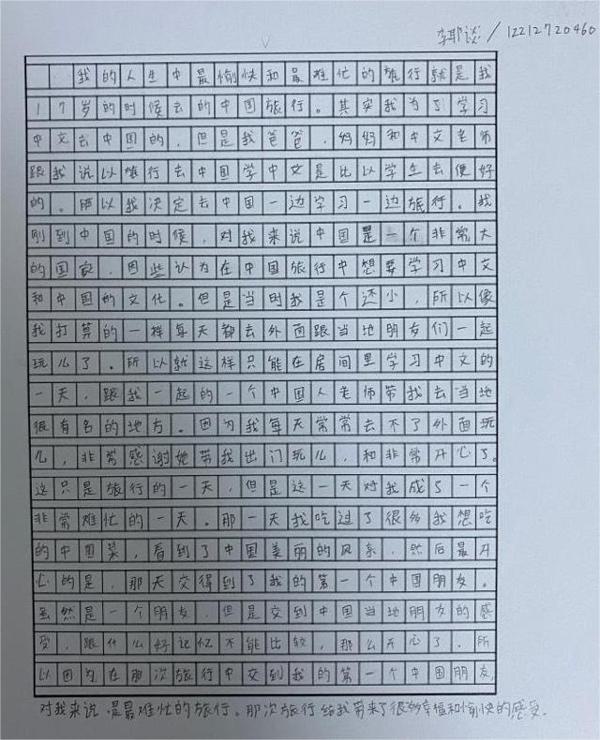 李耶谈 / 12212720460
我的人生中最愉快和最难忙的旅行就是我
17岁的时候去的中国旅行。其实我为了学习
中文去中国的，但是我爸爸，妈妈和中文老师
跟我说以旅行去中国学中文是比以学生去便好
的。所以我决定去中国一边学习一边旅行。我
刚到中国的时候，对我来说中国是一个非常大
的国家，因些认为在中国旅行中想要学习中文
和中国的文化。但是当时我是个还小，所以像
我打算的一样每天都去外面跟当地朋友们一起
玩儿了。所以就这样只能在房间里学习中文的
一天，跟我一起的一个中国人老师带我去当地
很有名的地方。因为我每天常常去不了外面玩
儿，非常感谢她带我出门玩儿，和非常开心了。
这只是旅行的一天，但是这一天对我成了一个
非常难忙的一天。那一天我吃过了很多我想吃
的中国菜，看到了中国美丽的风景，然后最开
心的是，那天交得到了我的第一个中国朋友。
虽然是一个朋友，但是交到中国当地朋友的感
受，跟什么好记忆不能比较，那么开心了。所
以因为在那次旅行中交到我的第一个中国朋友，
对我来说，是最难忙的旅行。那次旅行给我带来了很多幸福和愉快的感受。